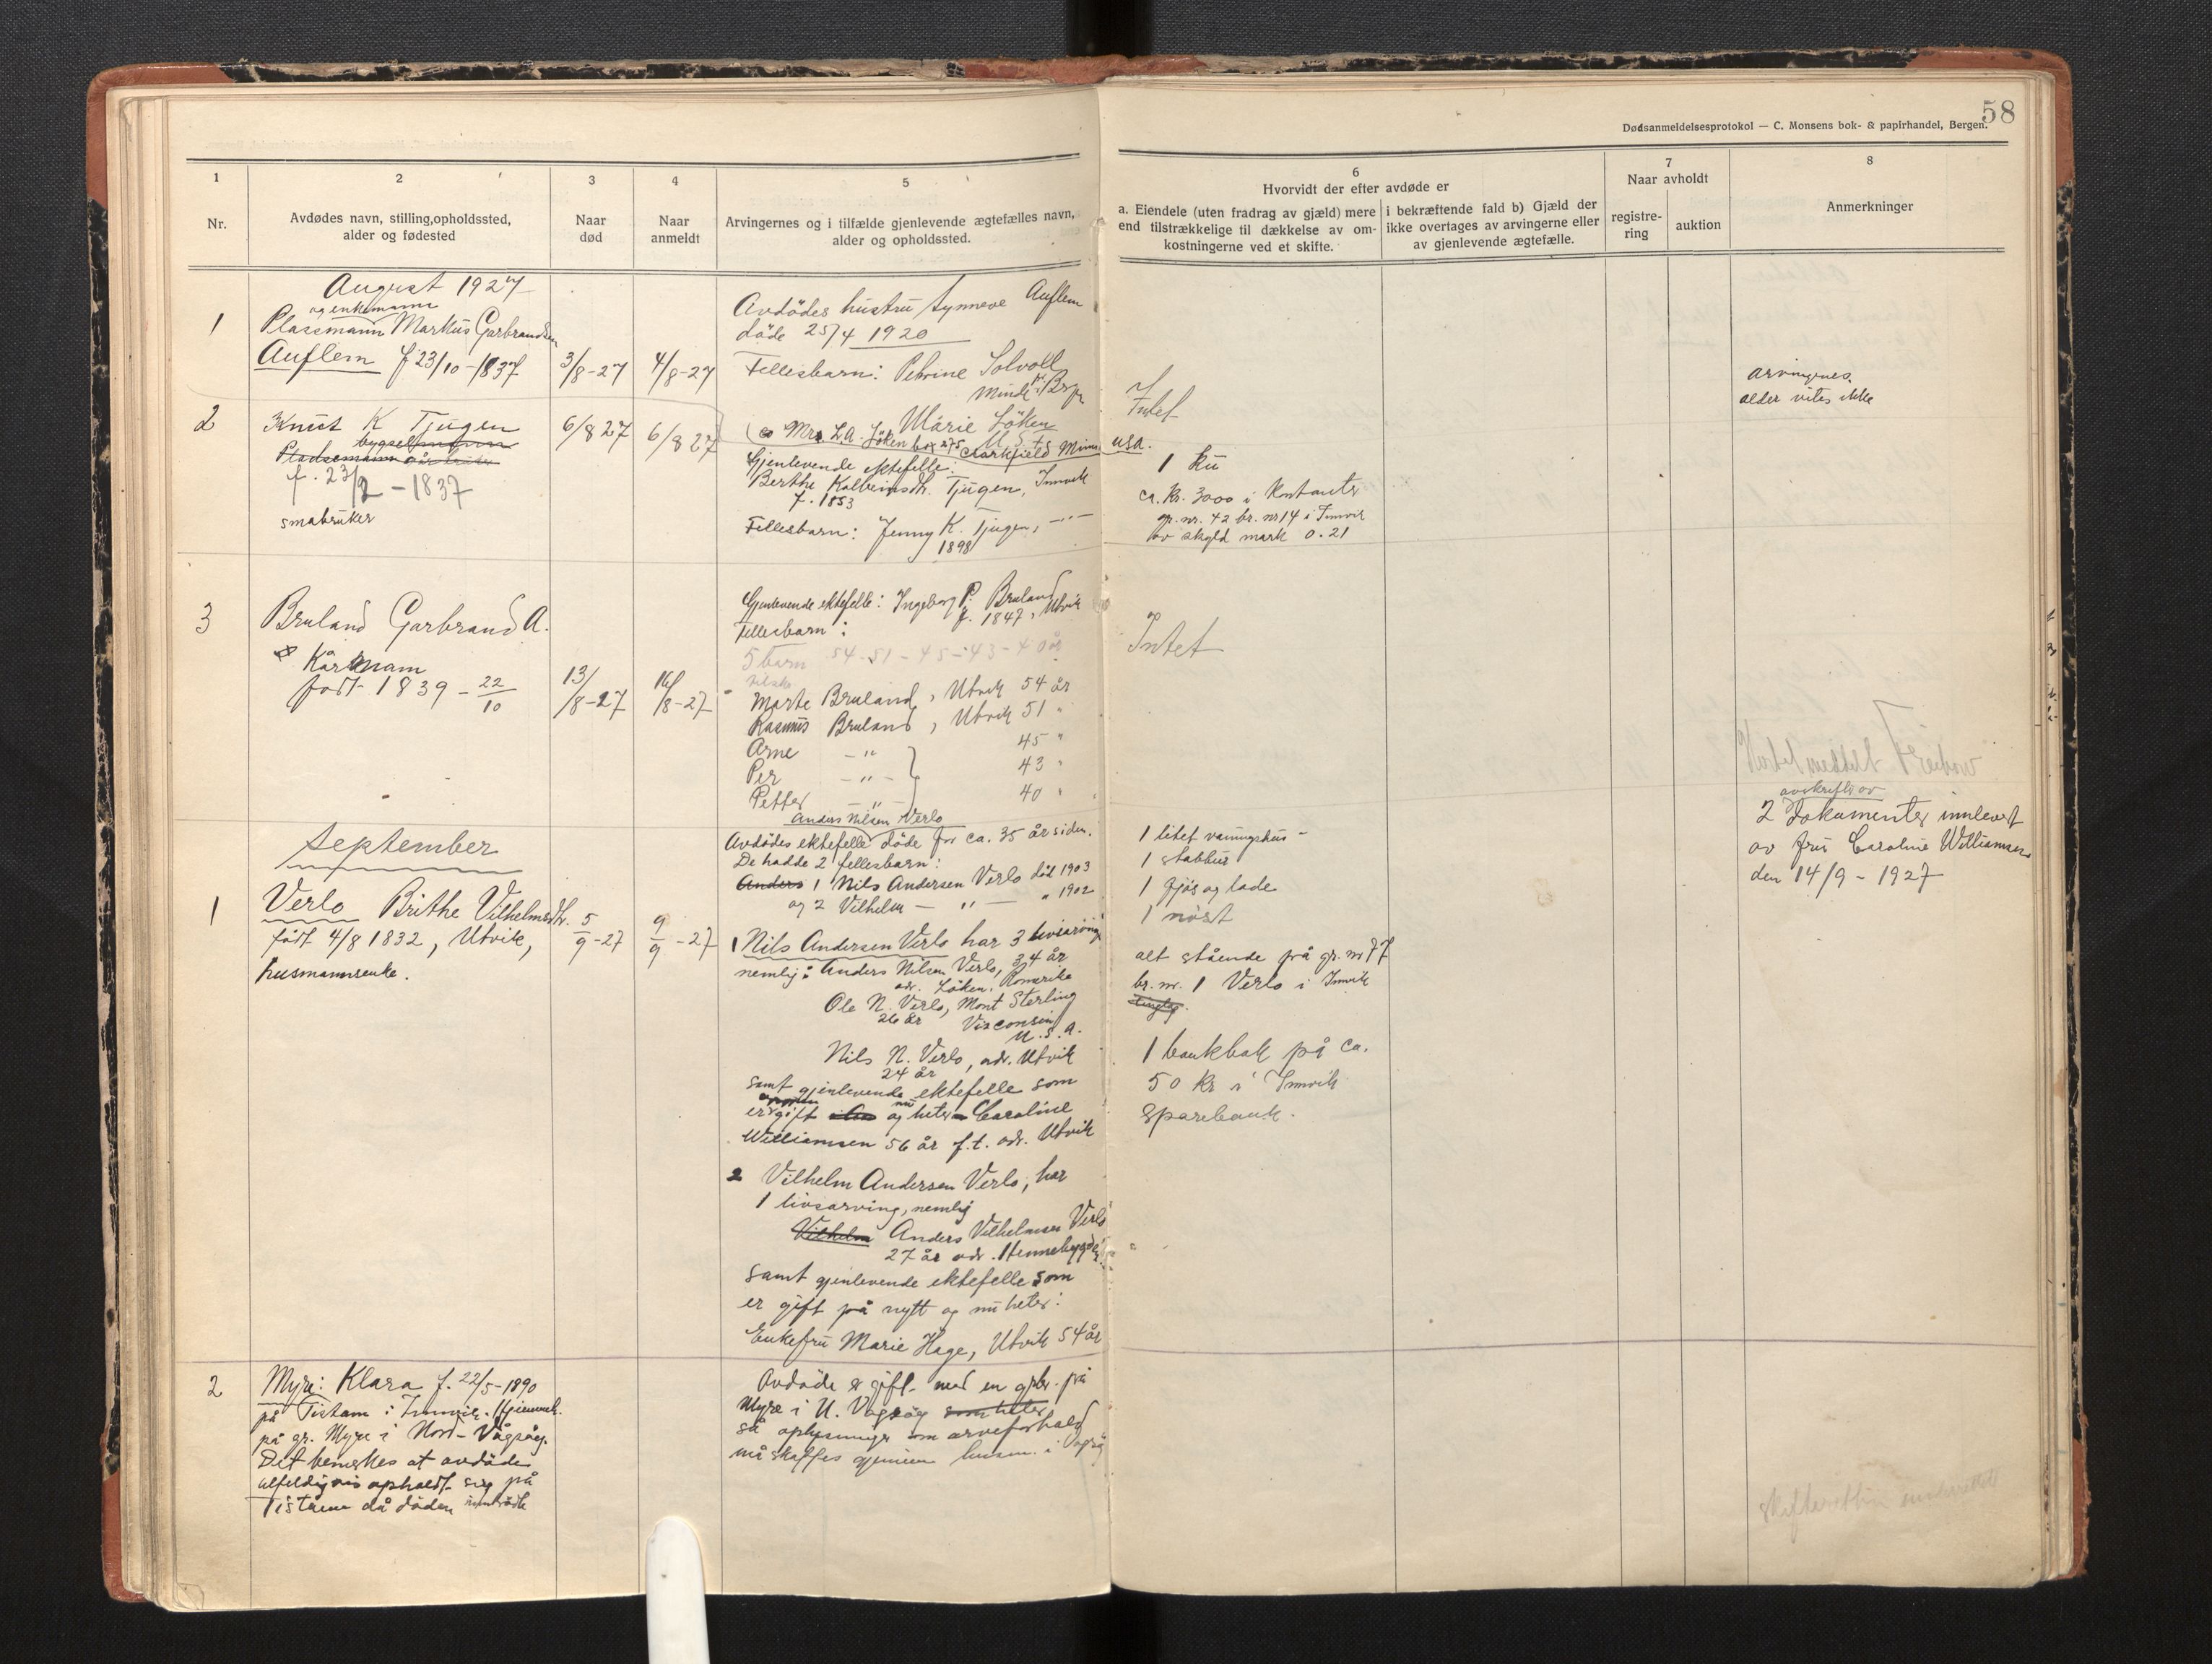 58
Dødsanmeldelsesprotokol — C. Monsens bok- & papirhandel, Bergen.
1
Nr.
2
Avdødes navn, stilling, opholdssted,
alder og fødested
3
Naar
død
4
Naar
anmeldt
5
Arvingernes og i tilfælde gjenlevende ægtefælles navn,
alder og opholdssted.
6
Hvorvidt der efter avdøde er
a. Eiendele (uten fradrag av gjæld) mere
end tilstrækkelige til dækkelse av om-
kostningerne ved et skifte.
i bekræftende fald b) Gjæld der
ikke overtages av arvingerne eller
av gjenlevende ægtefælle.
7
Naar avholdt
registre-
ring
auktion
8
Anmerkninger
August 1927
1
og enkemann
Plassmann Markus Garbrandsen
Auflem f 23/10-1837
3/8-27
4/8-27
Avdödes hustru Synneve Auflem
döde 25/4 1920
Fellesbarn: Petrine Solvoll
Minde pr. Brgn
Marie Löken
U.S.
Mrs. L.A. Löken box 275 Clarkfield Minn usa.
Intet
arvingenes
alder vites ikke
2
Knut K Tjugen
bygselmann
f. 23/2-1837
småbruker
6/8 27
6/8 27
Gjenlevende ektefelle:
Berthe Kolbeinsdtr. Tjugen, Innvik
f. 1853
Fellesbarn: Jenny K. Tjugen, —"—
1898
1 Ku
ca. Kr. 3000 i Kontanter
gr. nr. 42 br. nr 14 i Innvik
av skyld mark 0.21
3
Bruland Garbrand A.
Kårmann
født 1839 - 22/10
13/8-27
16/8-27
Gjenlevende ektefelle: Ingeborg P. Bruland
f. 1847, Utvik
Fellesbarn:
5 barn 54-51-45-43-40 år
Marte Bruland, Utvik 54 år
Rasmus Bruland, Utvik 51 "
Arne —"— 45 "
Per —"— 43 "
Petter —"— 40 "
Intet
September
1
Verlo Brithe Vilhelmsdtr.
födt 4/8 1832, Utvik,
husmannsenke.
5/9-27
9/9-27
Anders Nilsen Verlo
Avdödes ektefelle döde for ca. 35 år siden.
De hadde 2 fellesbarn:
Anders 1 Nils Andersen Verlo död 1903
og 2 Vilhelm — " — " 1902
1 Nils Andersen Verlo har 3 livsarvinger
nemlig: Anders Nilsen Verlo, 34 år
adr. Löken, Romerike
Ole N. Verlo, Mont Sterling
26 år Visconsin
U.S.A.
Nils N. Verlo, adr. Utvik
24 år
samt gjenlevende ektefelle som
er gift og nu heter Caroline
Williamsen 56 år f.t. adr. Utvik
2 Vilhelm Andersen Verlo, har
1 livsarving, nemlig
Vilhelm Anders Vilhelmsen Verlo
27 år adr. Hennebygda
samt gjenlevende ektefelle som
er gift på nytt og nu heter:
Enkefru Marie Hage, Utvik 54 år
1 litet vaaningshus -
1 stabbur
1 fjös og lade
1 nöst
alt stående på gr. nr 77
br. nr. 1 Verlo i Innvik
1 bankbok på ca.
50 Kr i Innvik
Sparebank.
avskrift av
2 Dokumenter innlevert
av fru Caroline Williamsen
den 14/9 - 1927
2
Myre: Klara f. 22/5-1890
på Tistam i Innvik. Hjemmeh.
på gr. Myre i Nord-Vågsöy.
Det bemerkes at avdöde
tilfeldigvis opholdt sig på
Tistam då döden inntrådte
Avdöde er gift med en gbr. på
Myre i N. Vågsöy som heter
så oplysninger om arveforhold
må skaffes gjennem lensm. i Vågsöy
Skifteretten underrettet